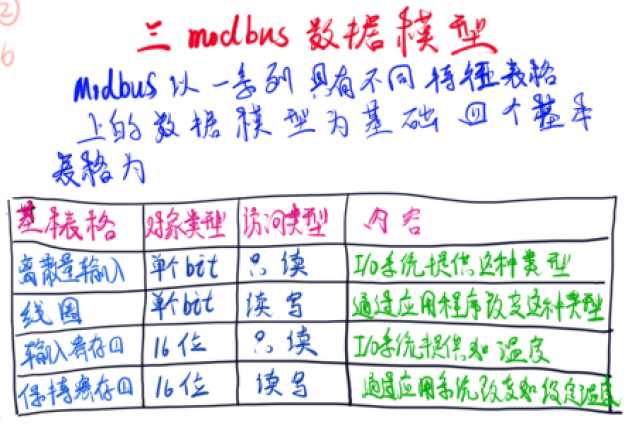 ②
6
三 modbus 数据模型
Modbus 以一系列具有不同特征表格
上的数据模型为基础 四个基本
表格为
基本表格 对象类型 访问类型 内容
离散量输入 单个bit 只读 I/O系统提供这种类型
线圈 单个bit 读写 通过应用程序改变这种类型
输入寄存口 16位 只读 I/O系统提供如温度
保持寄存口 16位 读写 通过应用系统改变如设定温度